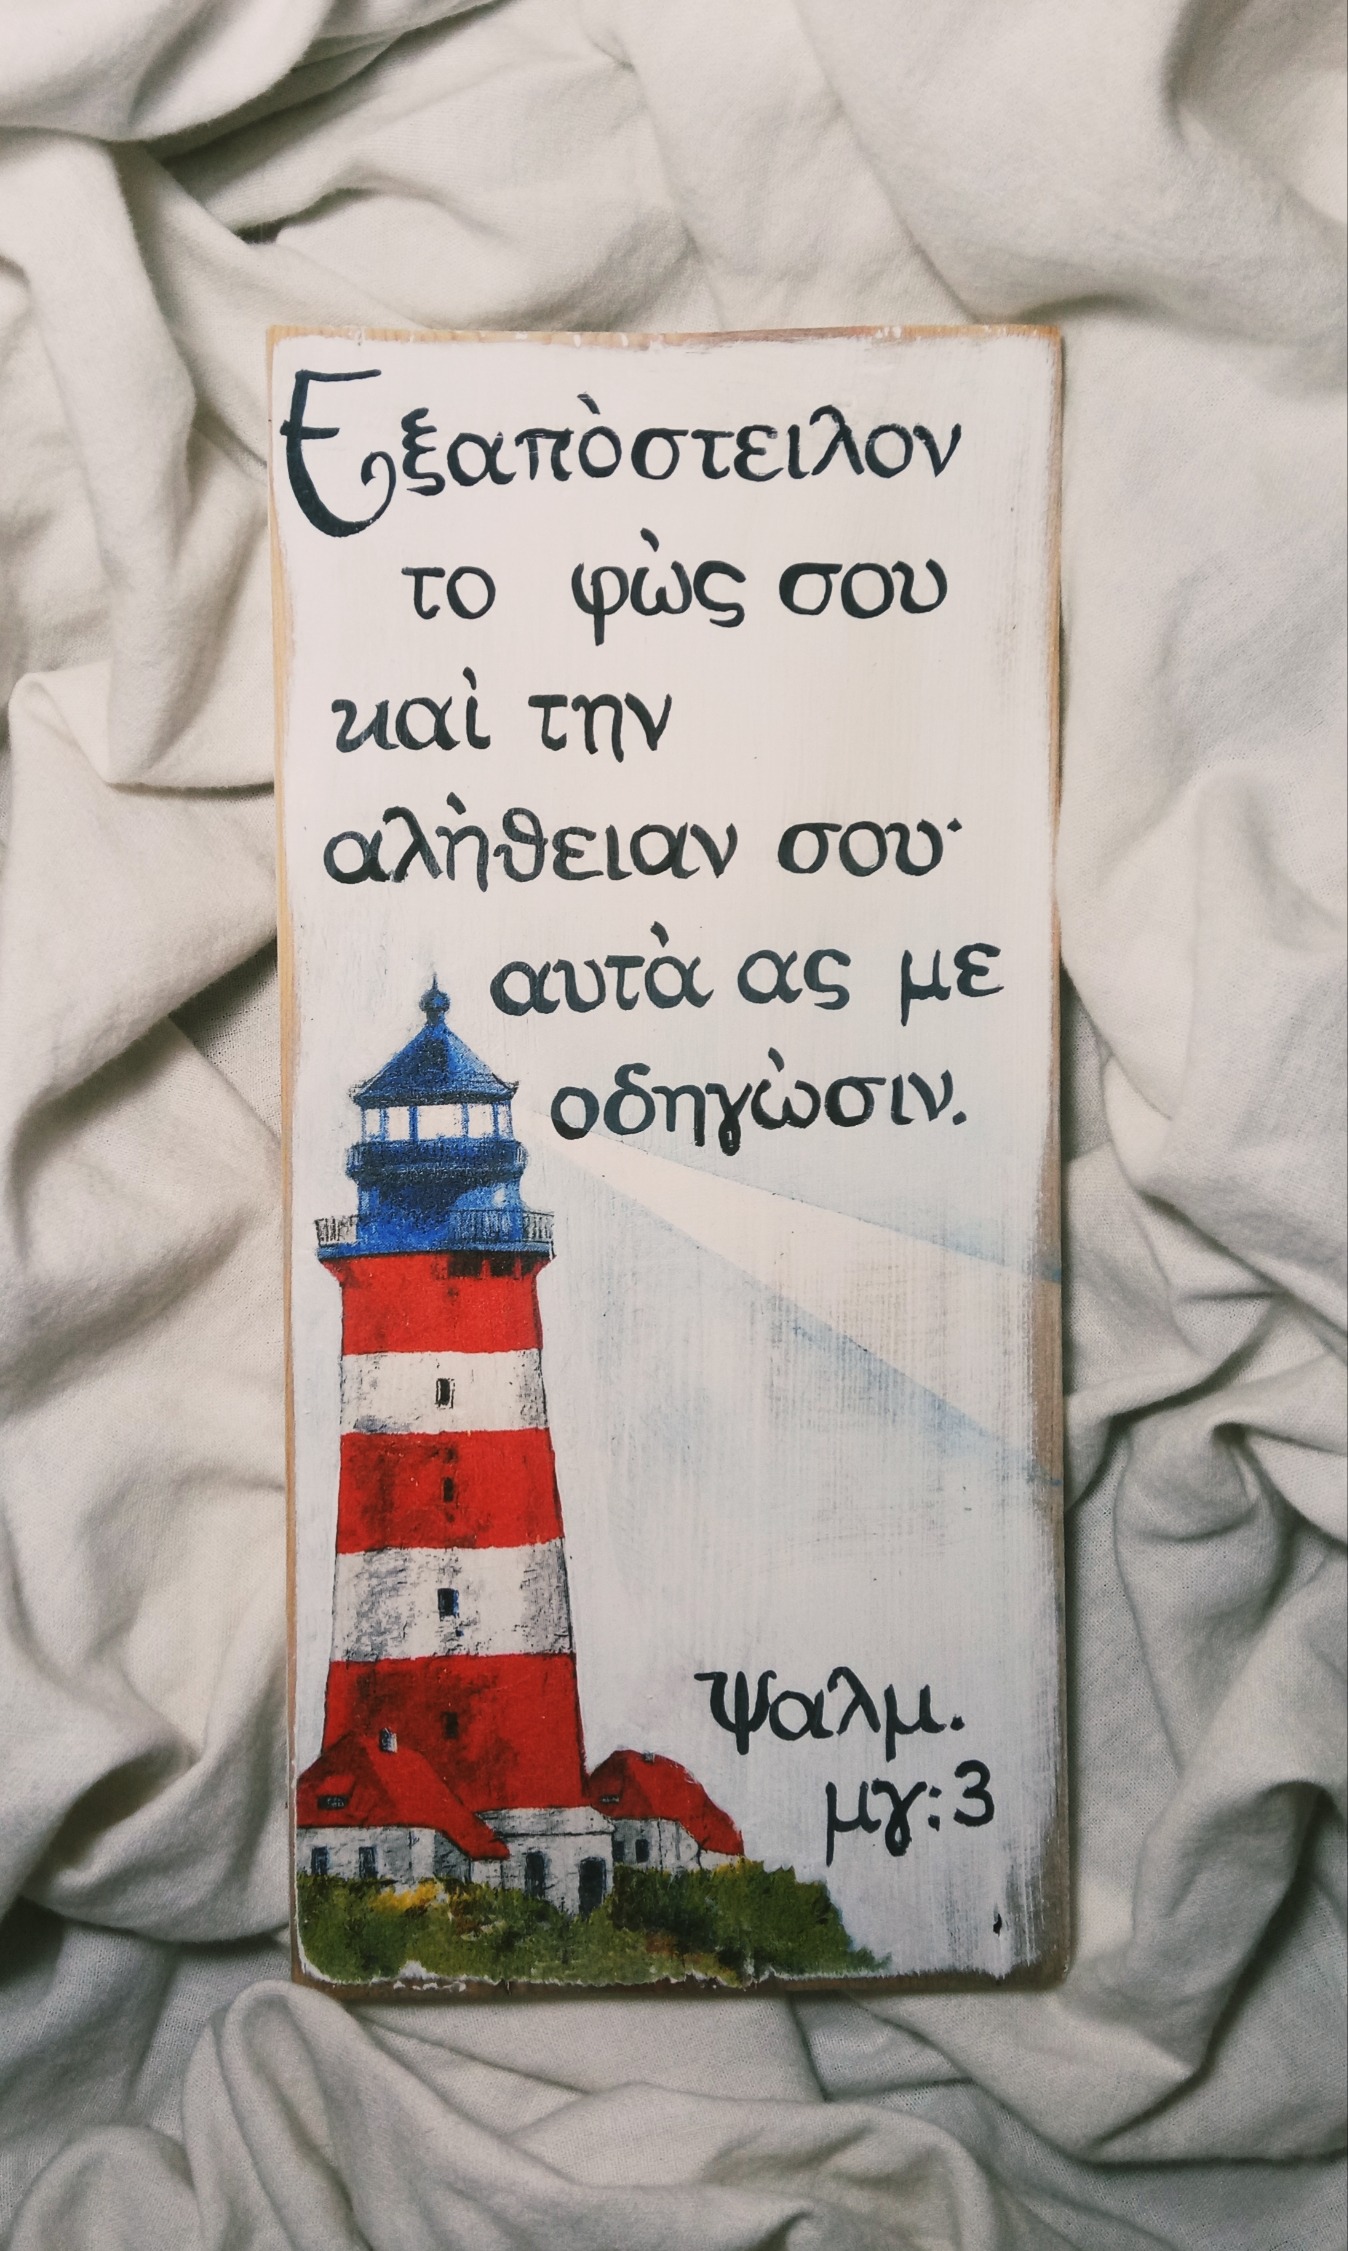 Εξαπὸστειλον
το φὼς σου
καὶ την
αλὴθειαν σου·
αυτὰ ας με
οδηγὼσιν.
Ψαλμ.
μγ:3